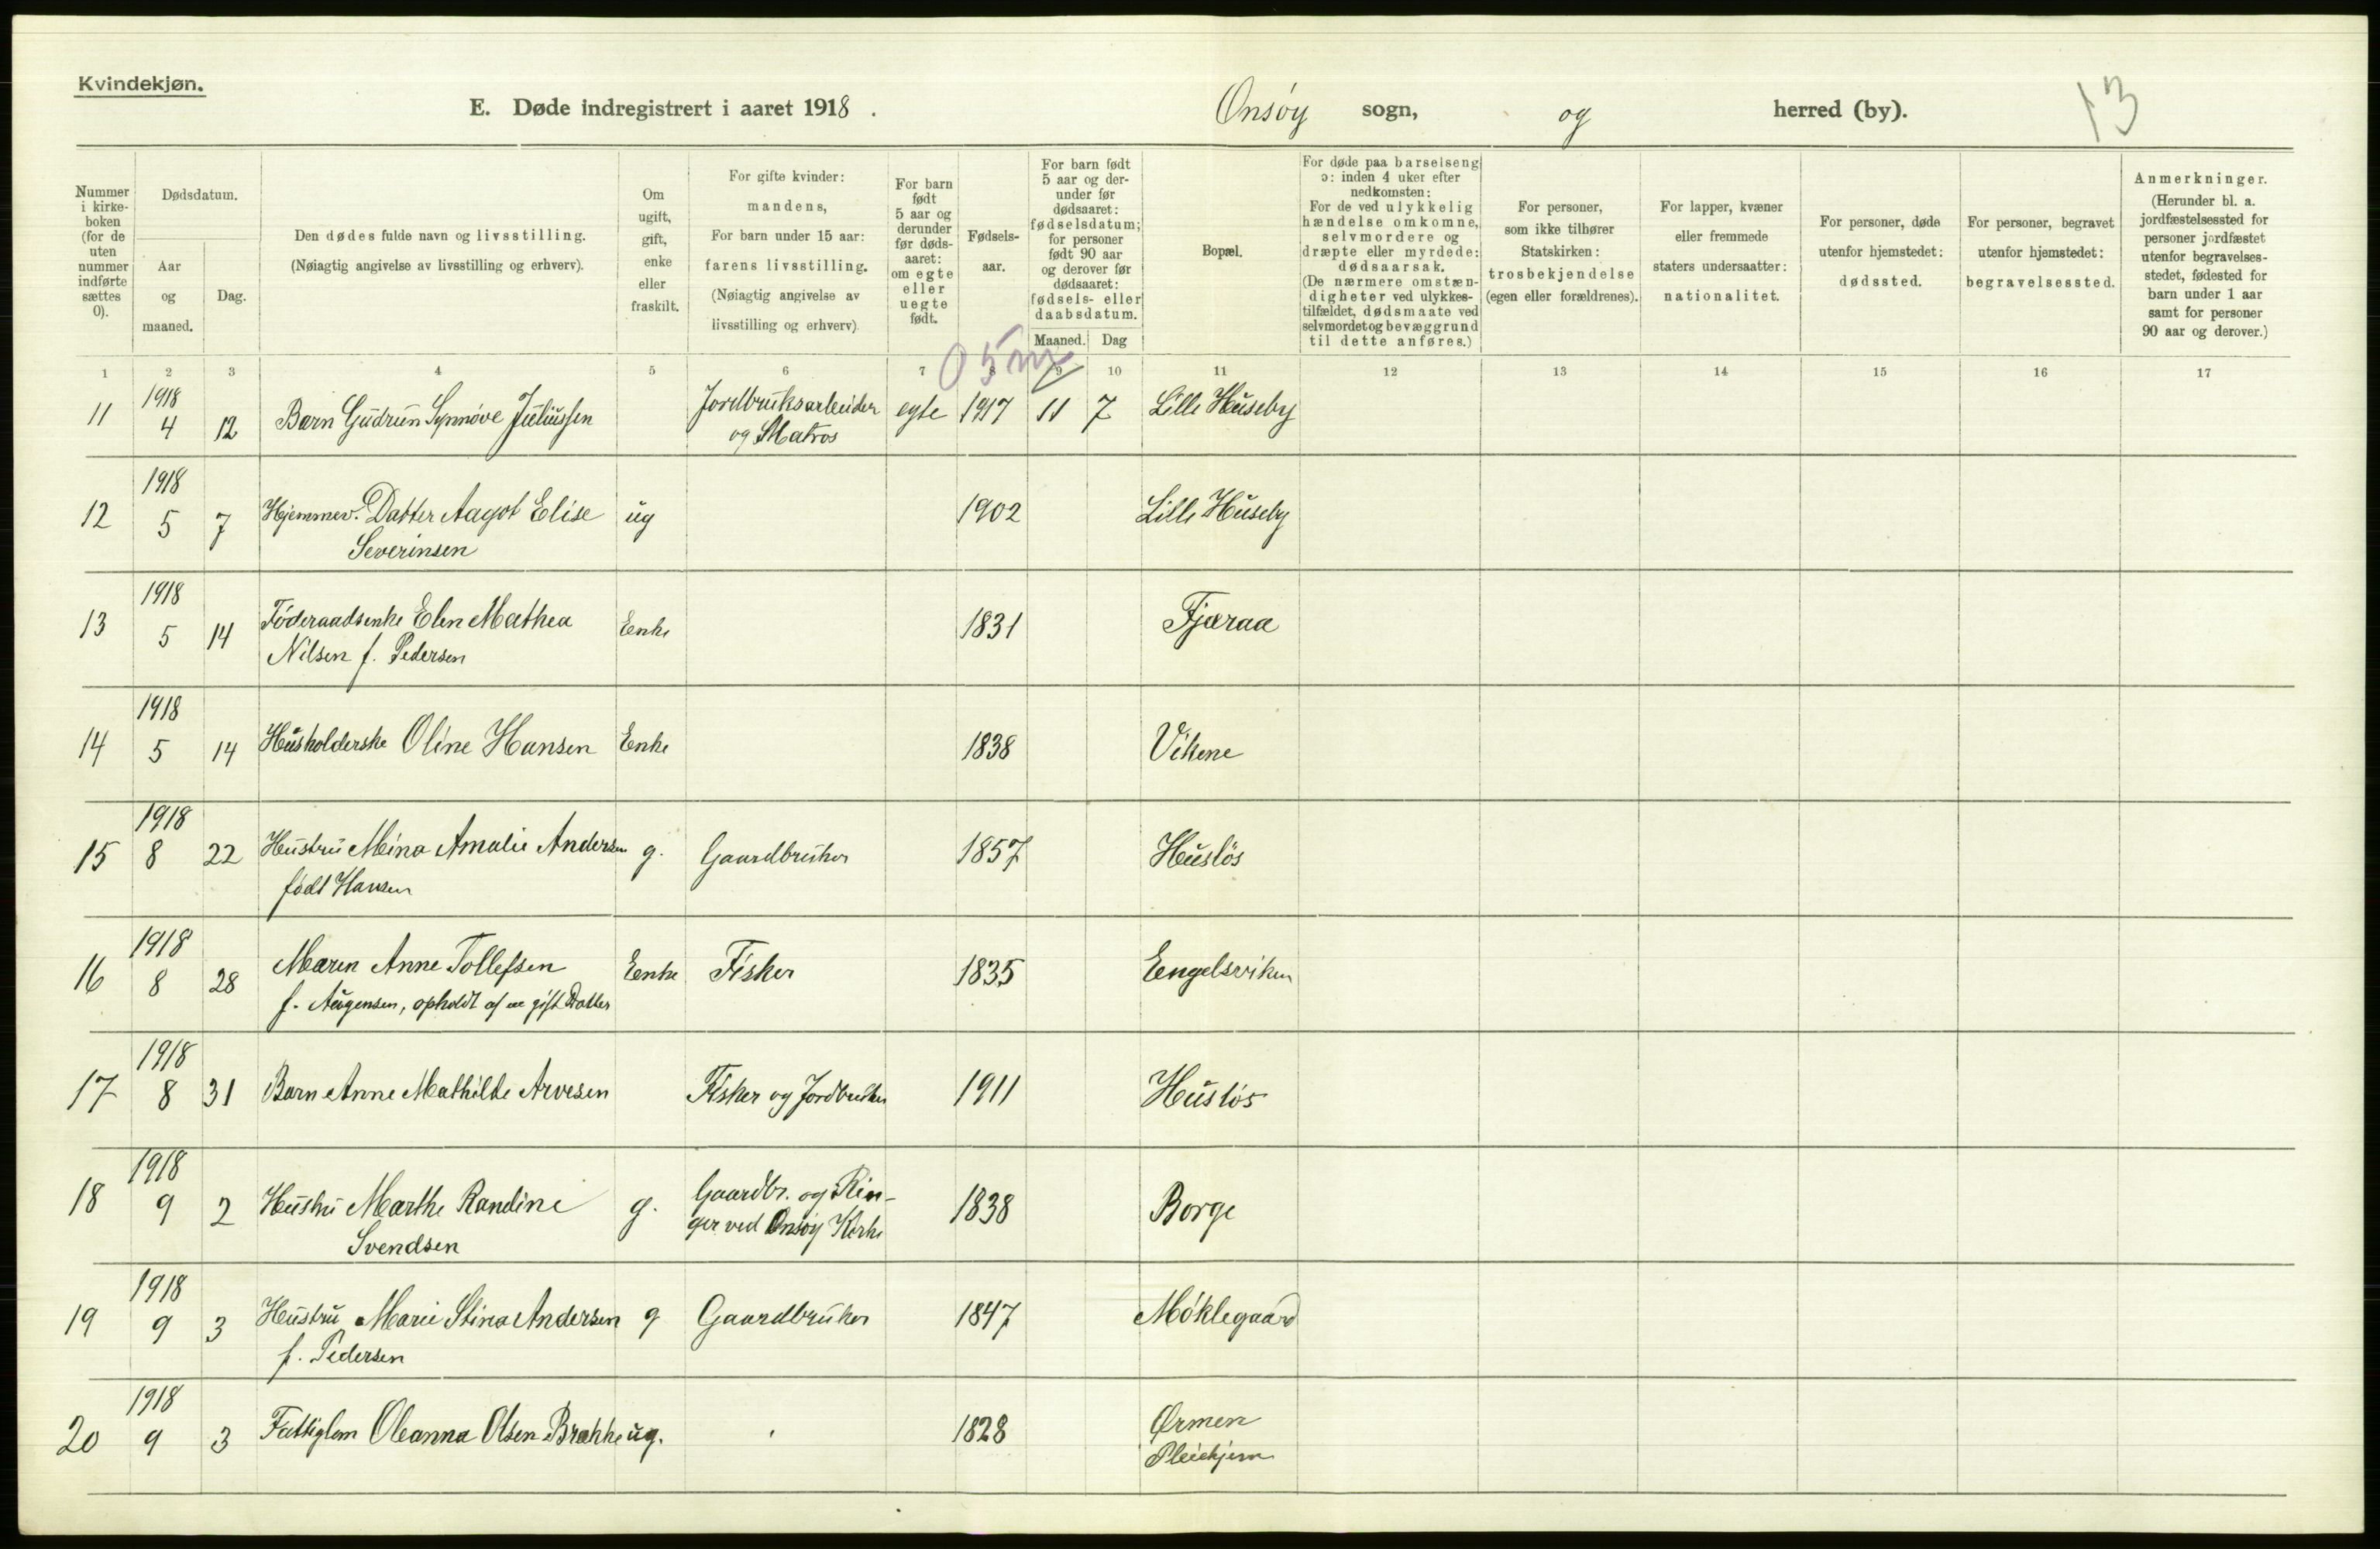 Kvindekjøn.
E. Døde indregistrert i aaret 1918.
Onsøy sogn, og herred (by).
13
Nummer i kirke-boken (for de uten nummer indførte sættes 0).
Dødsdatum.
Aar og maaned.
Dag.
Den dødes fulde navn og livsstilling.
(Nøiagtig angivelse av livsstilling og erhverv).
Om ugift, gift, enke eller fraskilt.
For gifte kvinder: mandens,
For barn under 15 aar: farens livsstilling.
(Nøiagtig angivelse av livsstilling og erhverv)
For barn født 5 aar og derunder før døds-aaret: om egte eller uegte født.
Fødsels-aar.
For barn født 5 aar og der-under før dødsaaret: fødselsdatum; for personer født 90 aar og derover før dødsaaret: fødsels- eller daabsdatum.
Maaned. Dag
Bopæl.
For døde paa barselseng ɔ: inden 4 uker efter nedkomsten:
For de ved ulykkelig hændelse omkomne, selvmordere og dræpte eller myrdede: dødsaarsak.
(De nærmere omstæn-digheter ved ulykkes-tilfældet, dødsmaate ved selvmordet og bevæggrund til dette anføres.)
For personer, som ikke tilhører Statskirken: trosbekjendelse (egen eller forældrenes).
For lapper, kvæner eller fremmede staters undersaatter: nationalitet.
For personer, døde utenfor hjemstedet: dødssted.
For personer, begravet utenfor hjemstedet: begravelsessted.
Anmerkninger.
(Herunder bl. a. jordfæstelsessted for personer jordfæstet utenfor begravelses-stedet, fødested for barn under 1 aar samt for personer 90 aar og derover.)
1 2 3 4 5 6 7 8 9 10 11 12 13 14 15 16 17
0 5 m
11 1918 4 12 Barn Gudrun Synnøve Juliussen Jordbruksarbeider og Matros egte 1917 11 7 Lille Huseby
12 1918 5 7 Hjemmev. Datter Aagot Elise Severinsen ug 1902 Lille Huseby
13 1918 5 14 Föderaadsenke Elen Mathea Nilsen f. Pedersen Enke 1831 Fjæraa
14 1918 5 14 Husholderske Oline Hansen Enke 1838 Vikene
15 1918 8 22 Hustru Mina Amalie Andersen født Hansen g. Gaardbruker 1857 Huslös
16 1918 8 28 Maren Anne Tollefsen f. Augensen, opholdt af en gift Datter Enke Fisker 1835 Engelsviken
17 1918 8 31 Barn Anne Mathilde Arvesen Fisker og Jordbruker 1911 Huslös
18 1918 9 2 Hustru Marthe Randine Svendsen g. Gaardbr. og Rin-ger ved Onsøy Kirke 1838 Borge
19 1918 9 3 Hustru Marie Stina Andersen f. Pedersen g Gaardbruker 1847 Møklegaard
20 1918 9 3 Fattiglem Oleanna Olsen Brække ug. 1828 Ørmen Pleiehjem